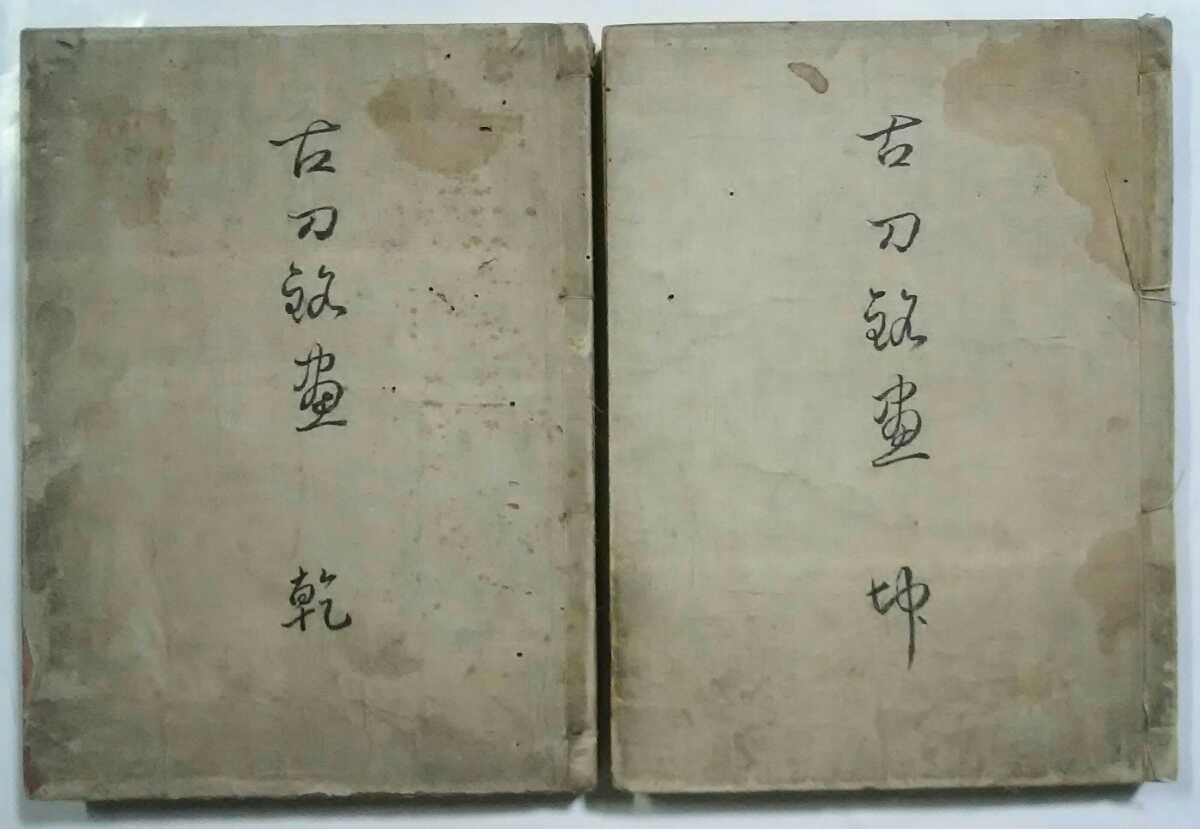 古刀銘画
乾
古刀銘画
坤